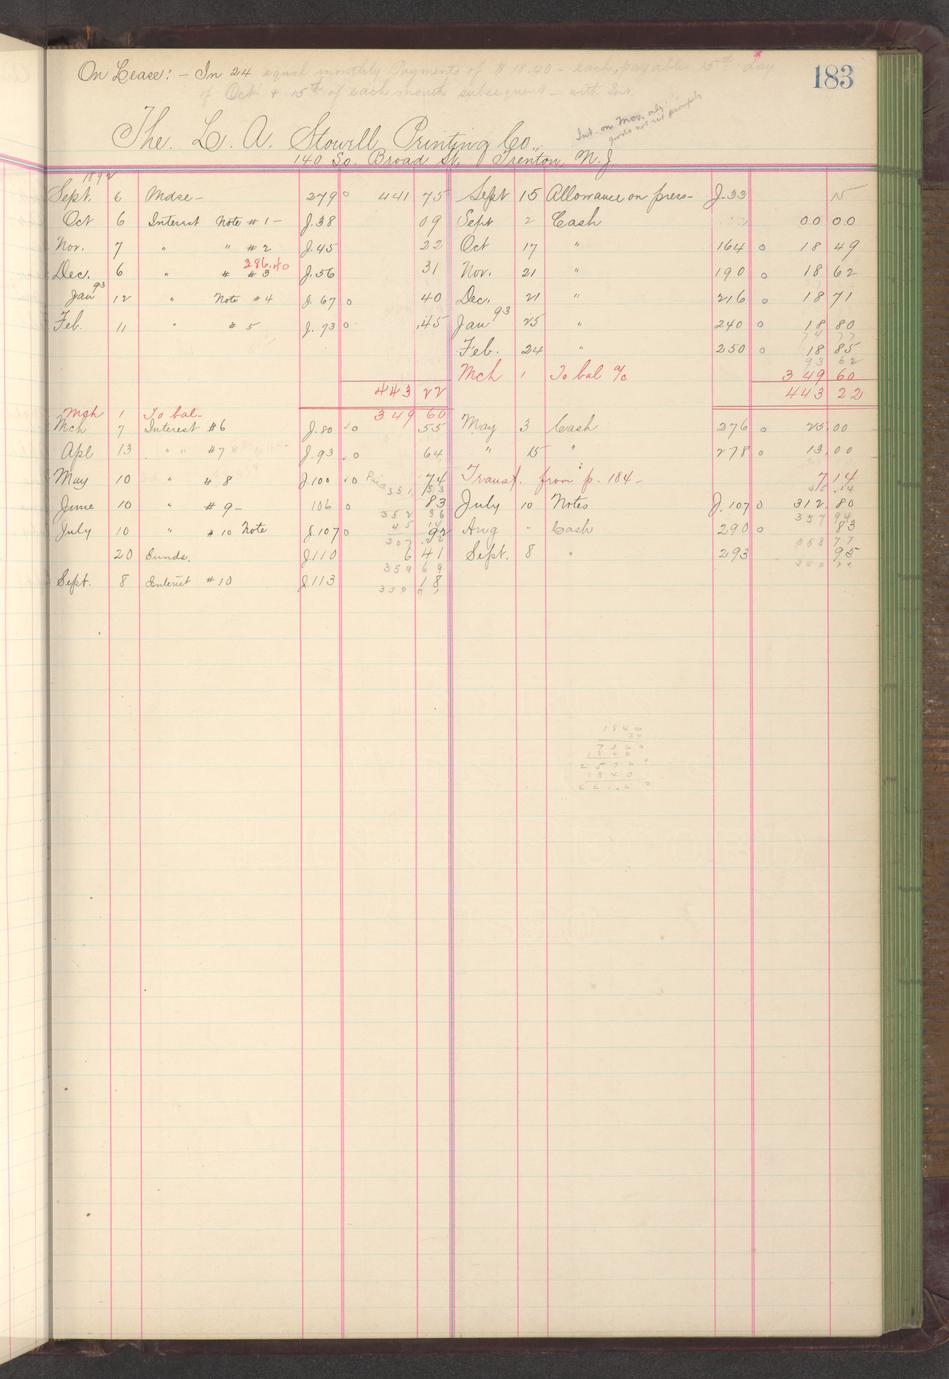 183
On Lease: - In 24 equal monthly Payments of $18.40 - each, payable 15th day
of Oct & 15th of each month subsequent - with Int.
Int. on Mos. only
The L. A. Stowell Printing Co.,
140 So. Broad St. Trenton, N.J.
1892
Sept. 6 Mdse - 279 o 441 75
Oct 6 Interest Note #1 - J.38 09
Nov. 7 " " #2 J.45 22
296.40
Dec. 6 " " #3 J.56 31
Jan 93 12 " Note #4 J.67 o 40
Feb. 11 " #5 J.73 o .45
443 22
Mch 1 To bal- 349 60
Mch 7 Interest #6 J.80 o 55
Apl 13 " " #7 J.93 o 64
May 10 " #8 J.100 o 74
351 53
June 10 " #9 - 106 o 83
352 36
July 10 " #10 Note J.107 o 92
20 Sunds. J.110 6 41
359 69
Sept. 8 Interest #10 J.113 18
Sept 15 Allowance on press- J.33 15
Sept 2 Cash 00 00
Oct 17 " 164 o 18 49
Nov. 21 " 190 o 18 62
Dec. 21 " 216 o 18 71
Jan 93 25 " 240 o 18 80
74 77
Feb. 24 " 250 o 18 85
93 62
Mch 1 To bal a/c 349 60
443 22
May 3 Cash 276 o 25 00
" 15 " 278 o 13 00
Transf. from p. 184- 7 14
July 10 Notes J.107 o 312 80
357 94
Aug " Cash 290 o 83
358 77
Sept. 8 " 293 95
1840